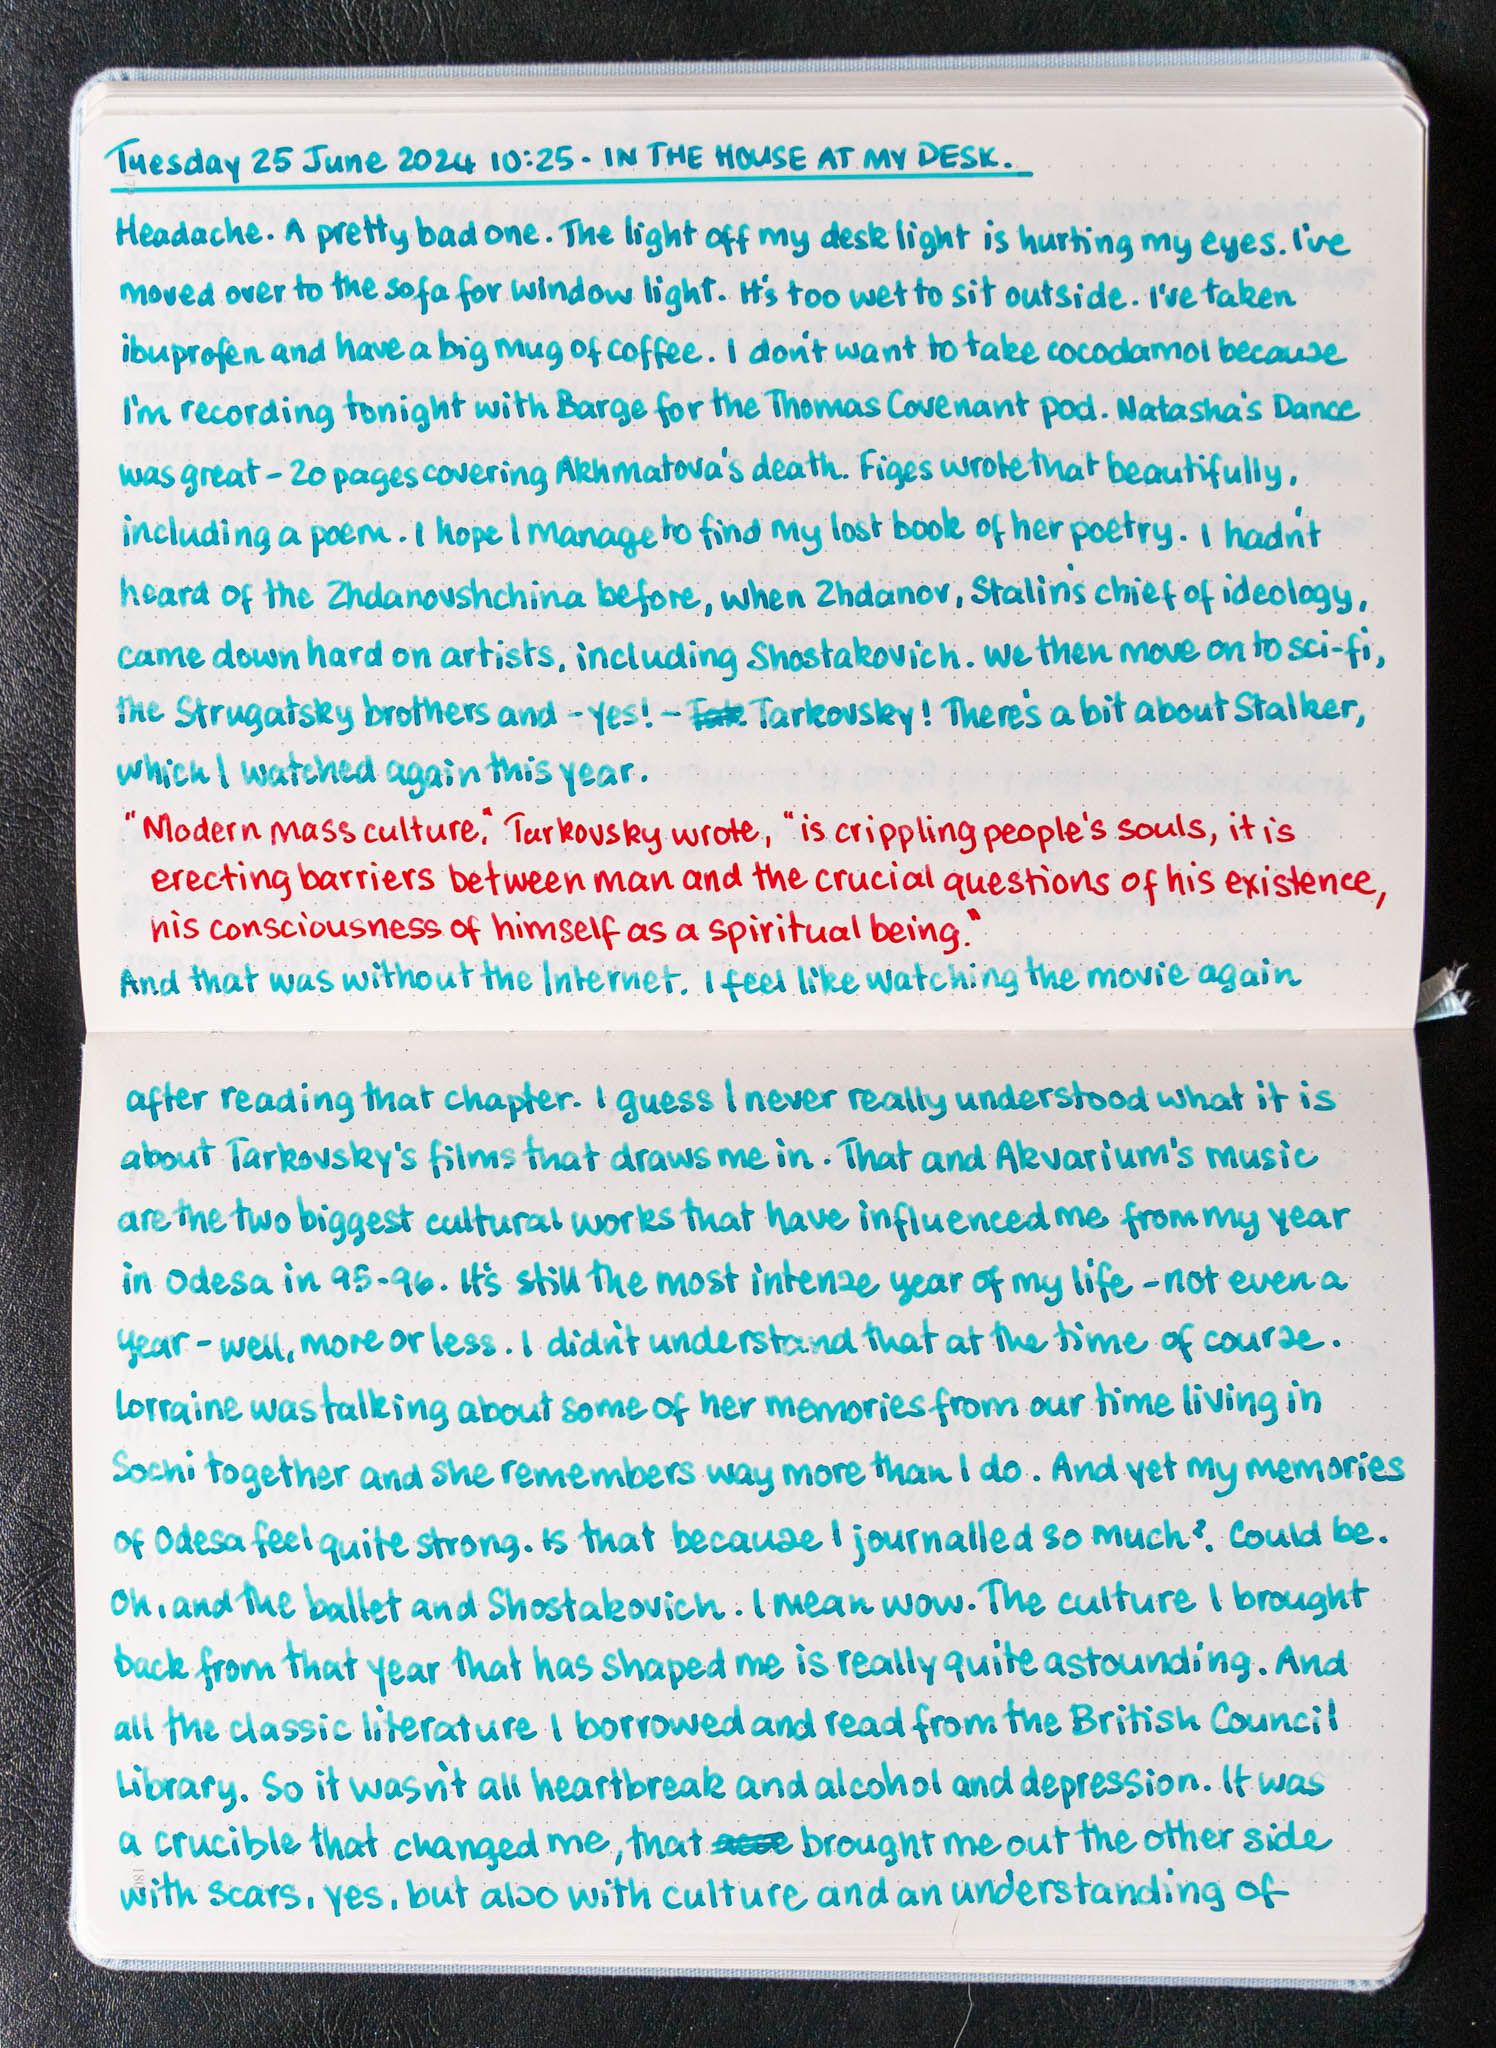 Tuesday 25 June 2024 10:25 - IN THE HOUSE AT MY DESK.
Headache. A pretty bad one. The light off my desk light is hurting my eyes. I've
moved over to the sofa for window light. It's too wet to sit outside. I've taken
ibuprofen and have a big mug of coffee. I don't want to take cocodamol because
I'm recording tonight with Barge for the Thomas Covenant pod. Natasha's Dance
was great - 20 pages covering Akhmatova's death. Figes wrote that beautifully,
including a poem. I hope I manage to find my lost book of her poetry. I hadn't
heard of the Zhdanovshchina before, when Zhdanov, Stalin's chief of ideology,
came down hard on artists, including Shostakovich. We then move on to sci-fi,
the Strugatsky brothers and - yes! - Tak Tarkovsky! There's a bit about Stalker,
which I watched again this year.
"Modern mass culture," Tarkovsky wrote, "is crippling people's souls, it is
erecting barriers between man and the crucial questions of his existence,
his consciousness of himself as a spiritual being."
And that was without the Internet. I feel like watching the movie again
after reading that chapter. I guess I never really understood what it is
about Tarkovsky's films that draws me in. That and Akvarium's music
are the two biggest cultural works that have influenced me from my year
in Odesa in 95-96. It's still the most intense year of my life - not even a
year - well, more or less. I didn't understand that at the time of course.
Lorraine was talking about some of her memories from our time living in
Sochi together and she remembers way more than I do. And yet my memories
of Odesa feel quite strong. Is that because I journalled so much? Could be.
Oh, and the ballet and Shostakovich. I mean wow. The culture I brought
back from that year that has shaped me is really quite astounding. And
all the classic literature I borrowed and read from the British Council
Library. So it wasn't all heartbreak and alcohol and depression. It was
a crucible that changed me, that brought me out the other side
with scars, yes, but also with culture and an understanding of
181